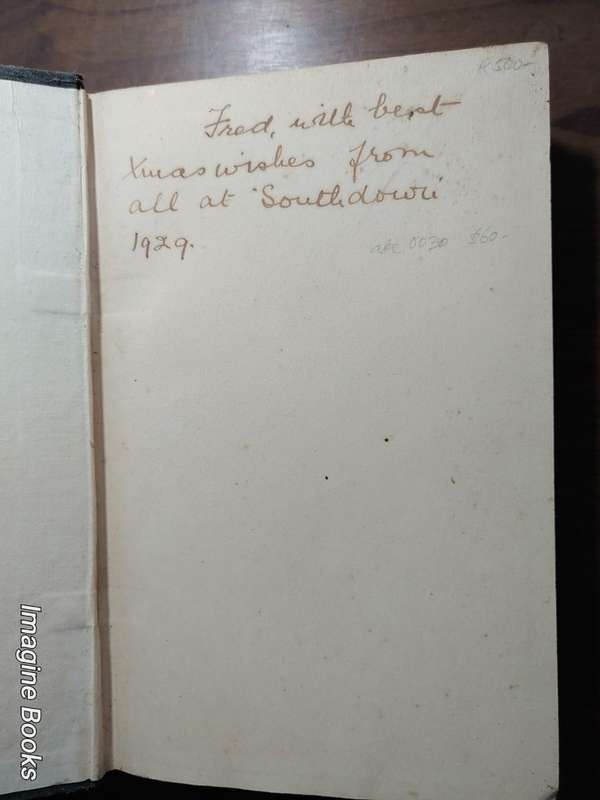 R500-
Fred, with best
Xmas wishes from
all at 'Southdown'
1929.
0030 $60-
Imagine Books